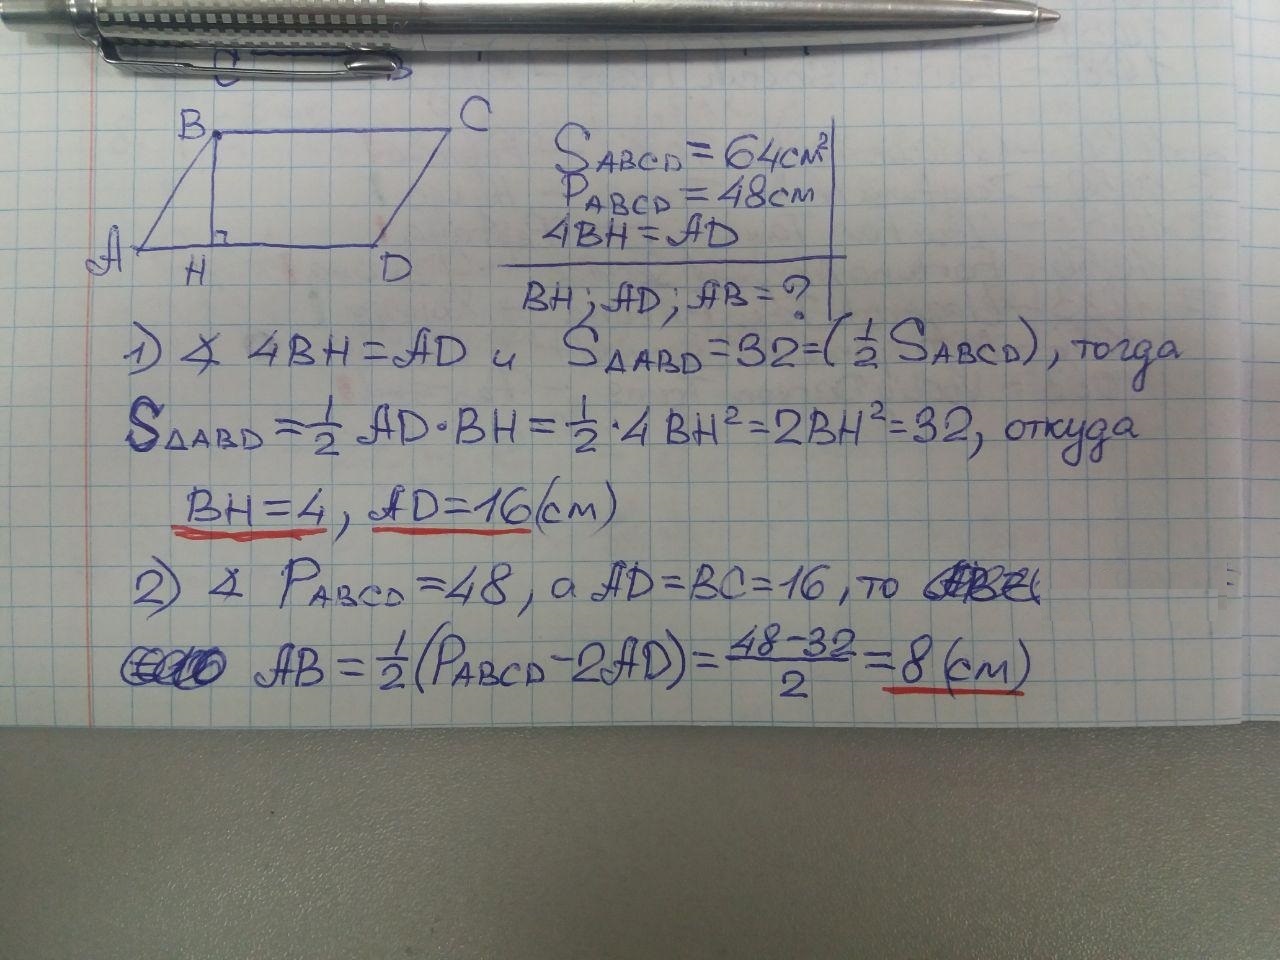 B C
A H D
S ABCD = 64 см²
P ABCD = 48 см
4BH = AD
BH; AD; AB = ?
1) ∡ 4BH = AD и S△ABD = 32 = (1/2 S ABCD), тогда
S△ABD = 1/2 AD · BH = 1/2 · 4 BH² = 2BH² = 32, откуда
BH = 4, AD = 16 (см)
2) ∡ P ABCD = 48, а AD = BC = 16, то
AB = 1/2 (P ABCD − 2AD) = (48 − 32)/2 = 8 (см)